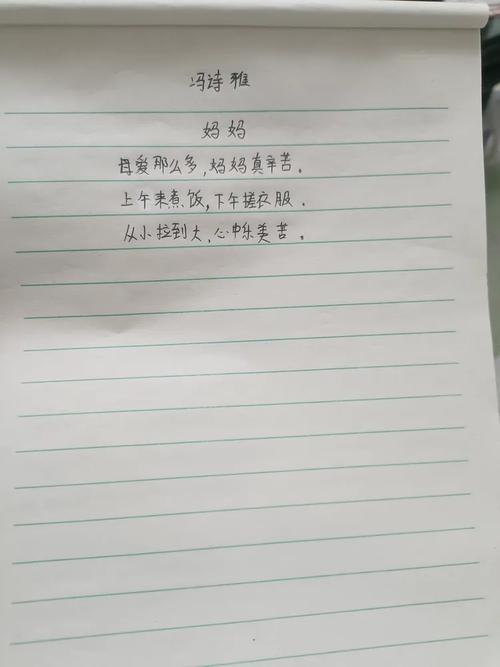 冯诗雅
妈妈
母爱那么多，妈妈真辛苦。
上午来煮饭，下午搓衣服．
从小拉到大，心中乐美苦。